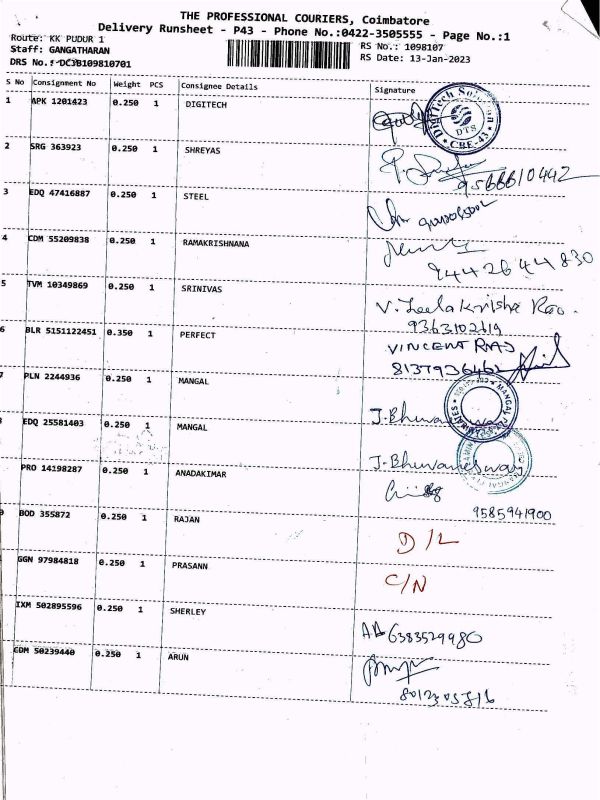 THE PROFESSIONAL COURIERS, Coimbatore
Delivery Runsheet - P43 - Phone No.:0422-3505555 - Page No.:1
Route: KK PUDUR 1
Staff: GANGATHARAN
RS No.: 1098107
DRS No.: DCJB109810701
RS Date: 13-Jan-2023
S No Consignment No Weight PCS Consignee Details Signature
1 APK 1201423 0.250 1 DIGITECH
DTS
CBE-43
2 SRG 363923 0.250 1 SHREYAS
9566610442
3 EDQ 47416887 0.250 1 STEEL
4 CDM 55209838 0.250 1 RAMAKRISHNANA
9442644830
5 TVM 10349869 0.250 1 SRINIVAS V. Leela Krishna Rao.
9363102119
6 BLR 5151122451 0.350 1 PERFECT VINCENT RAJ
8137936462
7 PLN 2244936 0.250 1 MANGAL
J. Bhuvaneswary
EDQ 25581403 0.250 1 MANGAL
J. Bhuvaneswary
PRO 14198287 0.250 1 ANADAKIMAR
9585941900
BOD 355872 0.250 1 RAJAN D/L
GGN 97984818 0.250 1 PRASANN C/N
IXM 502895596 0.250 1 SHERLEY
6383529980
COM 50239440 0.250 1 ARUN